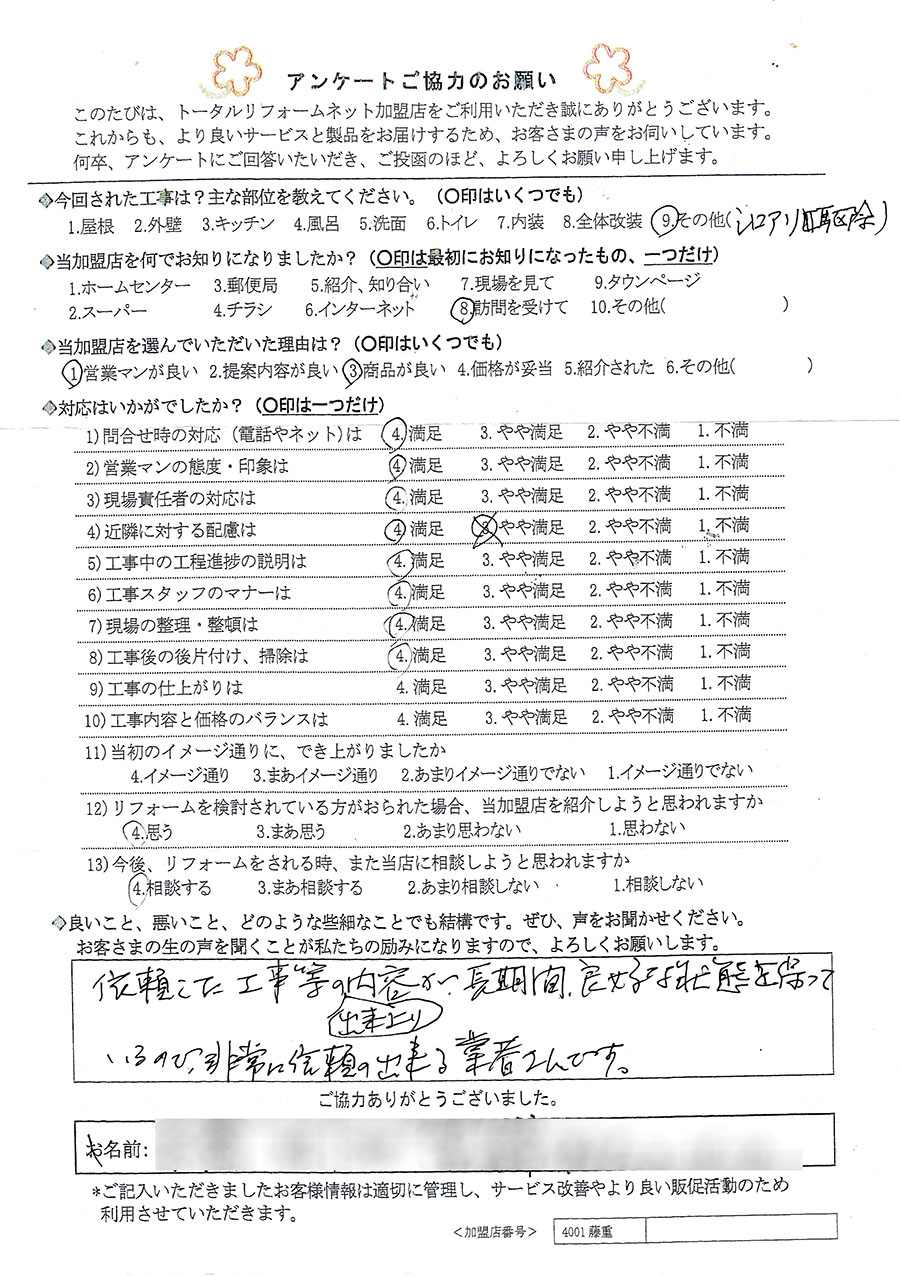 アンケートご協力のお願い
このたびは、トータルリフォームネット加盟店をご利用いただき誠にありがとうございます。
これからも、より良いサービスと製品をお届けするため、お客さまの声をお伺いしています。
何卒、アンケートにご回答いたいだき、ご投函のほど、よろしくお願い申し上げます。
◈今回された工事は？主な部位を教えてください。（〇印はいくつでも）
1.屋根 2.外壁 3.キッチン 4.風呂 5.洗面 6.トイレ 7.内装 8.全体改装 9.その他(シロアリ駆除)
◈当加盟店を何でお知りになりましたか？（〇印は最初にお知りになったもの、一つだけ）
1.ホームセンター 3.郵便局 5.紹介、知り合い 7.現場を見て 9.タウンページ
2.スーパー 4.チラシ 6.インターネット 8.訪問を受けて 10.その他( )
◈当加盟店を選んでいただいた理由は？（〇印はいくつでも）
1営業マンが良い 2.提案内容が良い 3商品が良い 4.価格が妥当 5.紹介された 6.その他( )
◈対応はいかがでしたか？（〇印は一つだけ）
1)問合せ時の対応（電話やネット)は 4.満足 3.やや満足 2.やや不満 1.不満
2)営業マンの態度・印象は 4.満足 3.やや満足 2.やや不満 1.不満
3)現場責任者の対応は 4.満足 3.やや満足 2.やや不満 1.不満
4)近隣に対する配慮は 4.満足 3やや満足 2.やや不満 1.不満
5)工事中の工程進捗の説明は 4.満足 3.やや満足 2.やや不満 1.不満
6)工事スタッフのマナーは 4.満足 3.やや満足 2.やや不満 1.不満
7)現場の整理・整頓は 4.満足 3.やや満足 2.やや不満 1.不満
8)工事後の後片付け、掃除は 4.満足 3.やや満足 2.やや不満 1.不満
9)工事の仕上がりは 4.満足 3.やや満足 2.やや不満 1.不満
10)工事内容と価格のバランスは 4.満足 3.やや満足 2.やや不満 1.不満
11)当初のイメージ通りに、でき上がりましたか
4.イメージ通り 3.まあイメージ通り 2.あまりイメージ通りでない 1.イメージ通りでない
12)リフォームを検討されている方がおられた場合、当加盟店を紹介しようと思われますか
4.思う 3.まあ思う 2.あまり思わない 1.思わない
13)今後、リフォームをされる時、また当店に相談しようと思われますか
4.相談する 3.まあ相談する 2.あまり相談しない 1.相談しない
◈良いこと、悪いこと、どのような些細なことでも結構です。ぜひ、声をお聞かせください。
お客さまの生の声を聞くことが私たちの励みになりますので、よろしくお願いします。
依頼した工事等の内容が、長期間、良好な状態を保って
出来上り
いるので、非常に信頼の出来る業者さんです。
ご協力ありがとうございました。
お名前:
*ご記入いただきましたお客様情報は適切に管理し、サービス改善やより良い販促活動のため
利用させていただきます。
＜加盟店番号＞ 4001 藤重